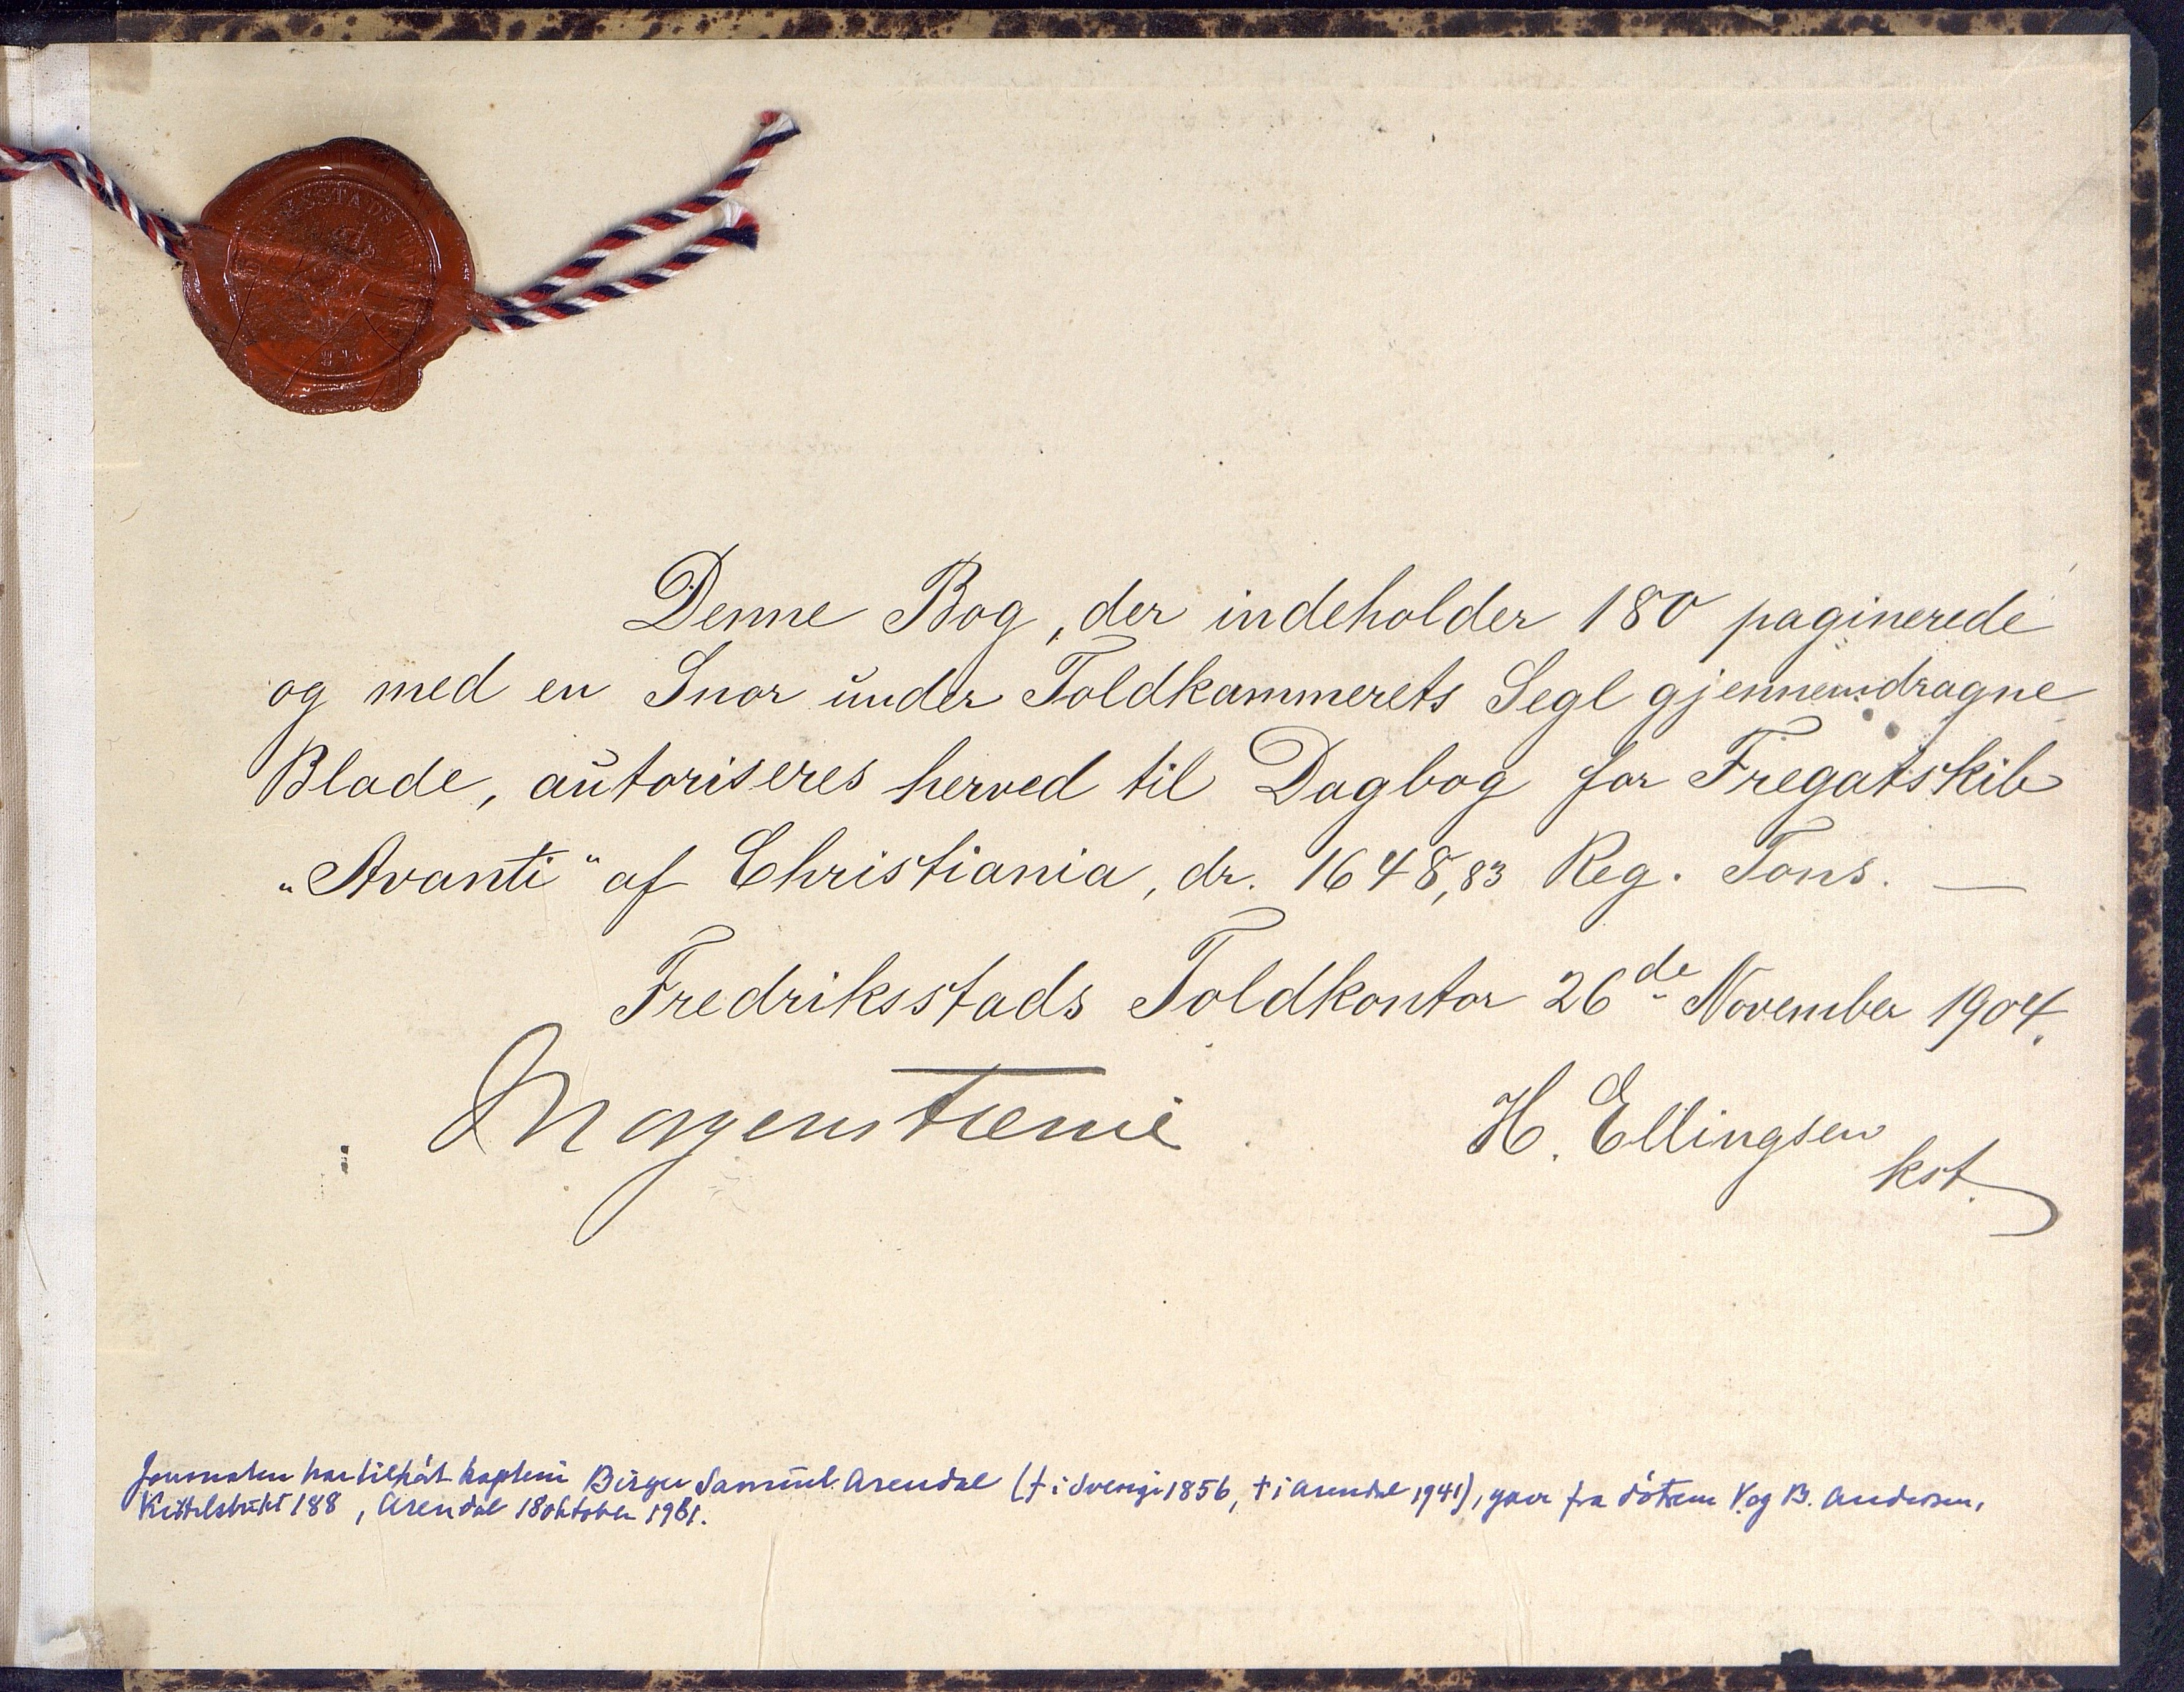 Denne Bog, der indeholder 180 paginerede
og med en Snor under Toldkammerets Segl gjennemdragne
Blade, autoriseres herved til Dagbog for Fregatskib
„Avanti“ af Christiania, dr. 1648,83 Reg. Tons. —
Fredriksstads Toldkontor 26de November 1904.
H. Ellingsen
kst.
Journalen har tilhört kaptein Birger Samuel Arendal († i Sverige 1856, † i Arendal 1941), gave fra döttrene V. og B. Andersen,
Kittelsbukt 188, Arendal 18 oktober 1961.